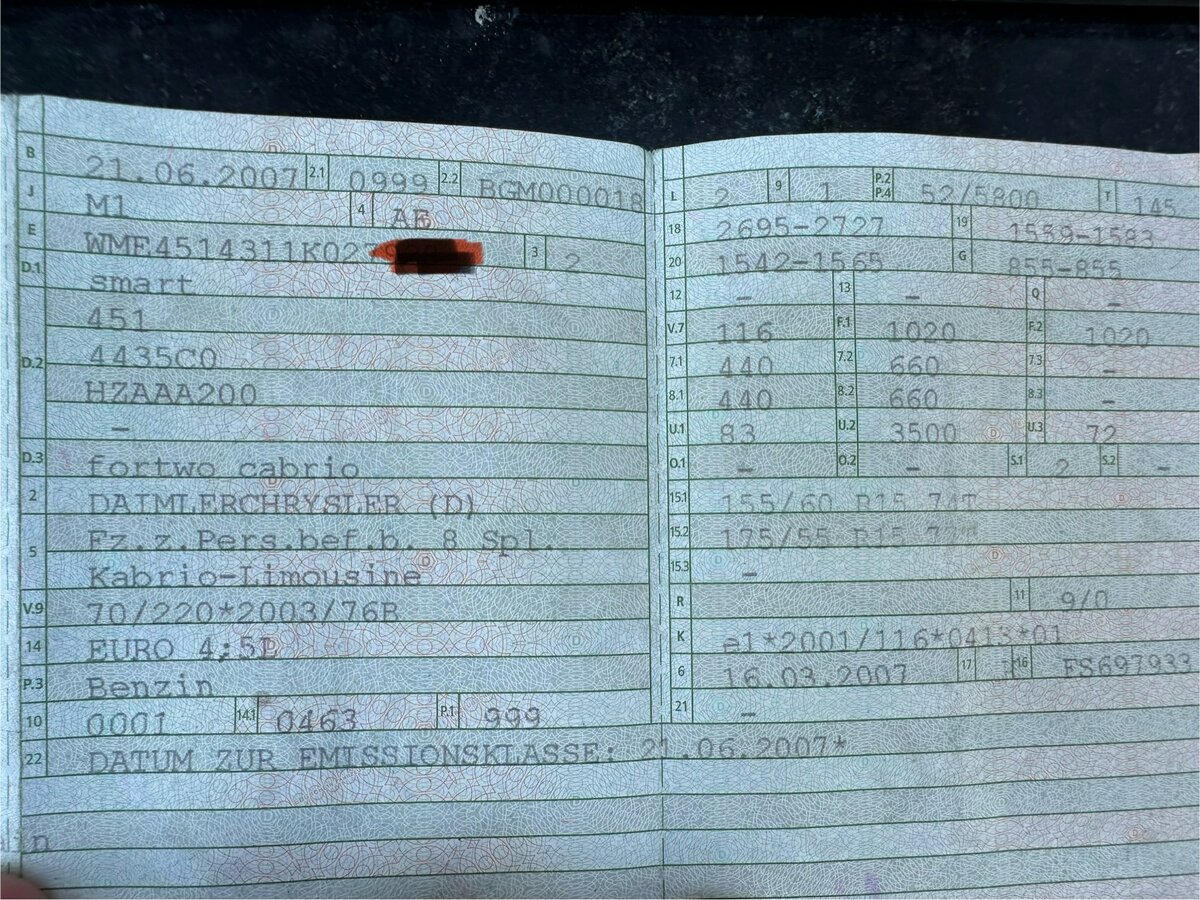 B 21.06.2007 2.1 0999 2.2 BGM000018
J M1 4 AF
E WME4514311K02 3 2
D.1 smart
451
D.2 4435C0
HZAAA200
–
D.3 fortwo cabrio
2 DAIMLERCHRYSLER (D)
5 Fz.z.Pers.bef.b. 8 Spl.
Kabrio-Limousine
V.9 70/220*2003/76B
14 EURO 4;5L
P.3 Benzin
10 0001 14.1 0463 P.1 999
22 DATUM ZUR EMISSIONSKLASSE: 21.06.2007*
n
L 2 9 1 P.2 P.4 52/5800 T 145
18 2695-2727 19 1559-1583
20 1542-1565 G 855-855
12 – 13 – Q –
V.7 116 F.1 1020 F.2 1020
7.1 440 7.2 660 7.3 –
8.1 440 8.2 660 8.3 –
U.1 83 U.2 3500 U.3 72
O.1 – O.2 – S.1 2 S.2 –
15.1 155/60 R15 74T
15.2 175/55 R15
15.3 –
R 11 9/0
K e1*2001/116*0413*01
6 16.03.2007 17 16 FS697933
21 –